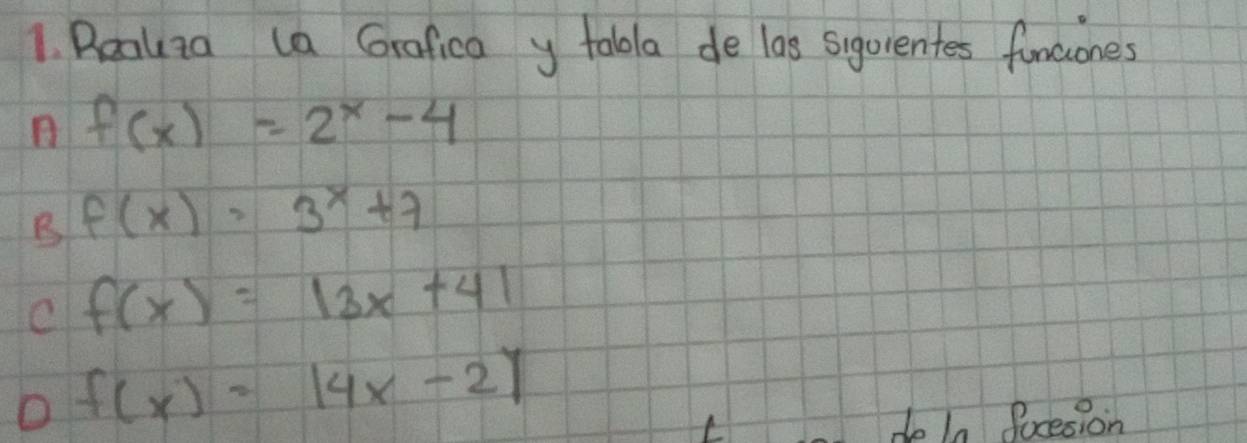 1. Realiza la Grafica y tabla de las siguientes funciones
A f(x) = 2ˣ - 4
B f(x) = 3ˣ + 7
C f(x) = |3x + 4|
D f(x) = |4x - 2|
de la Sucesión